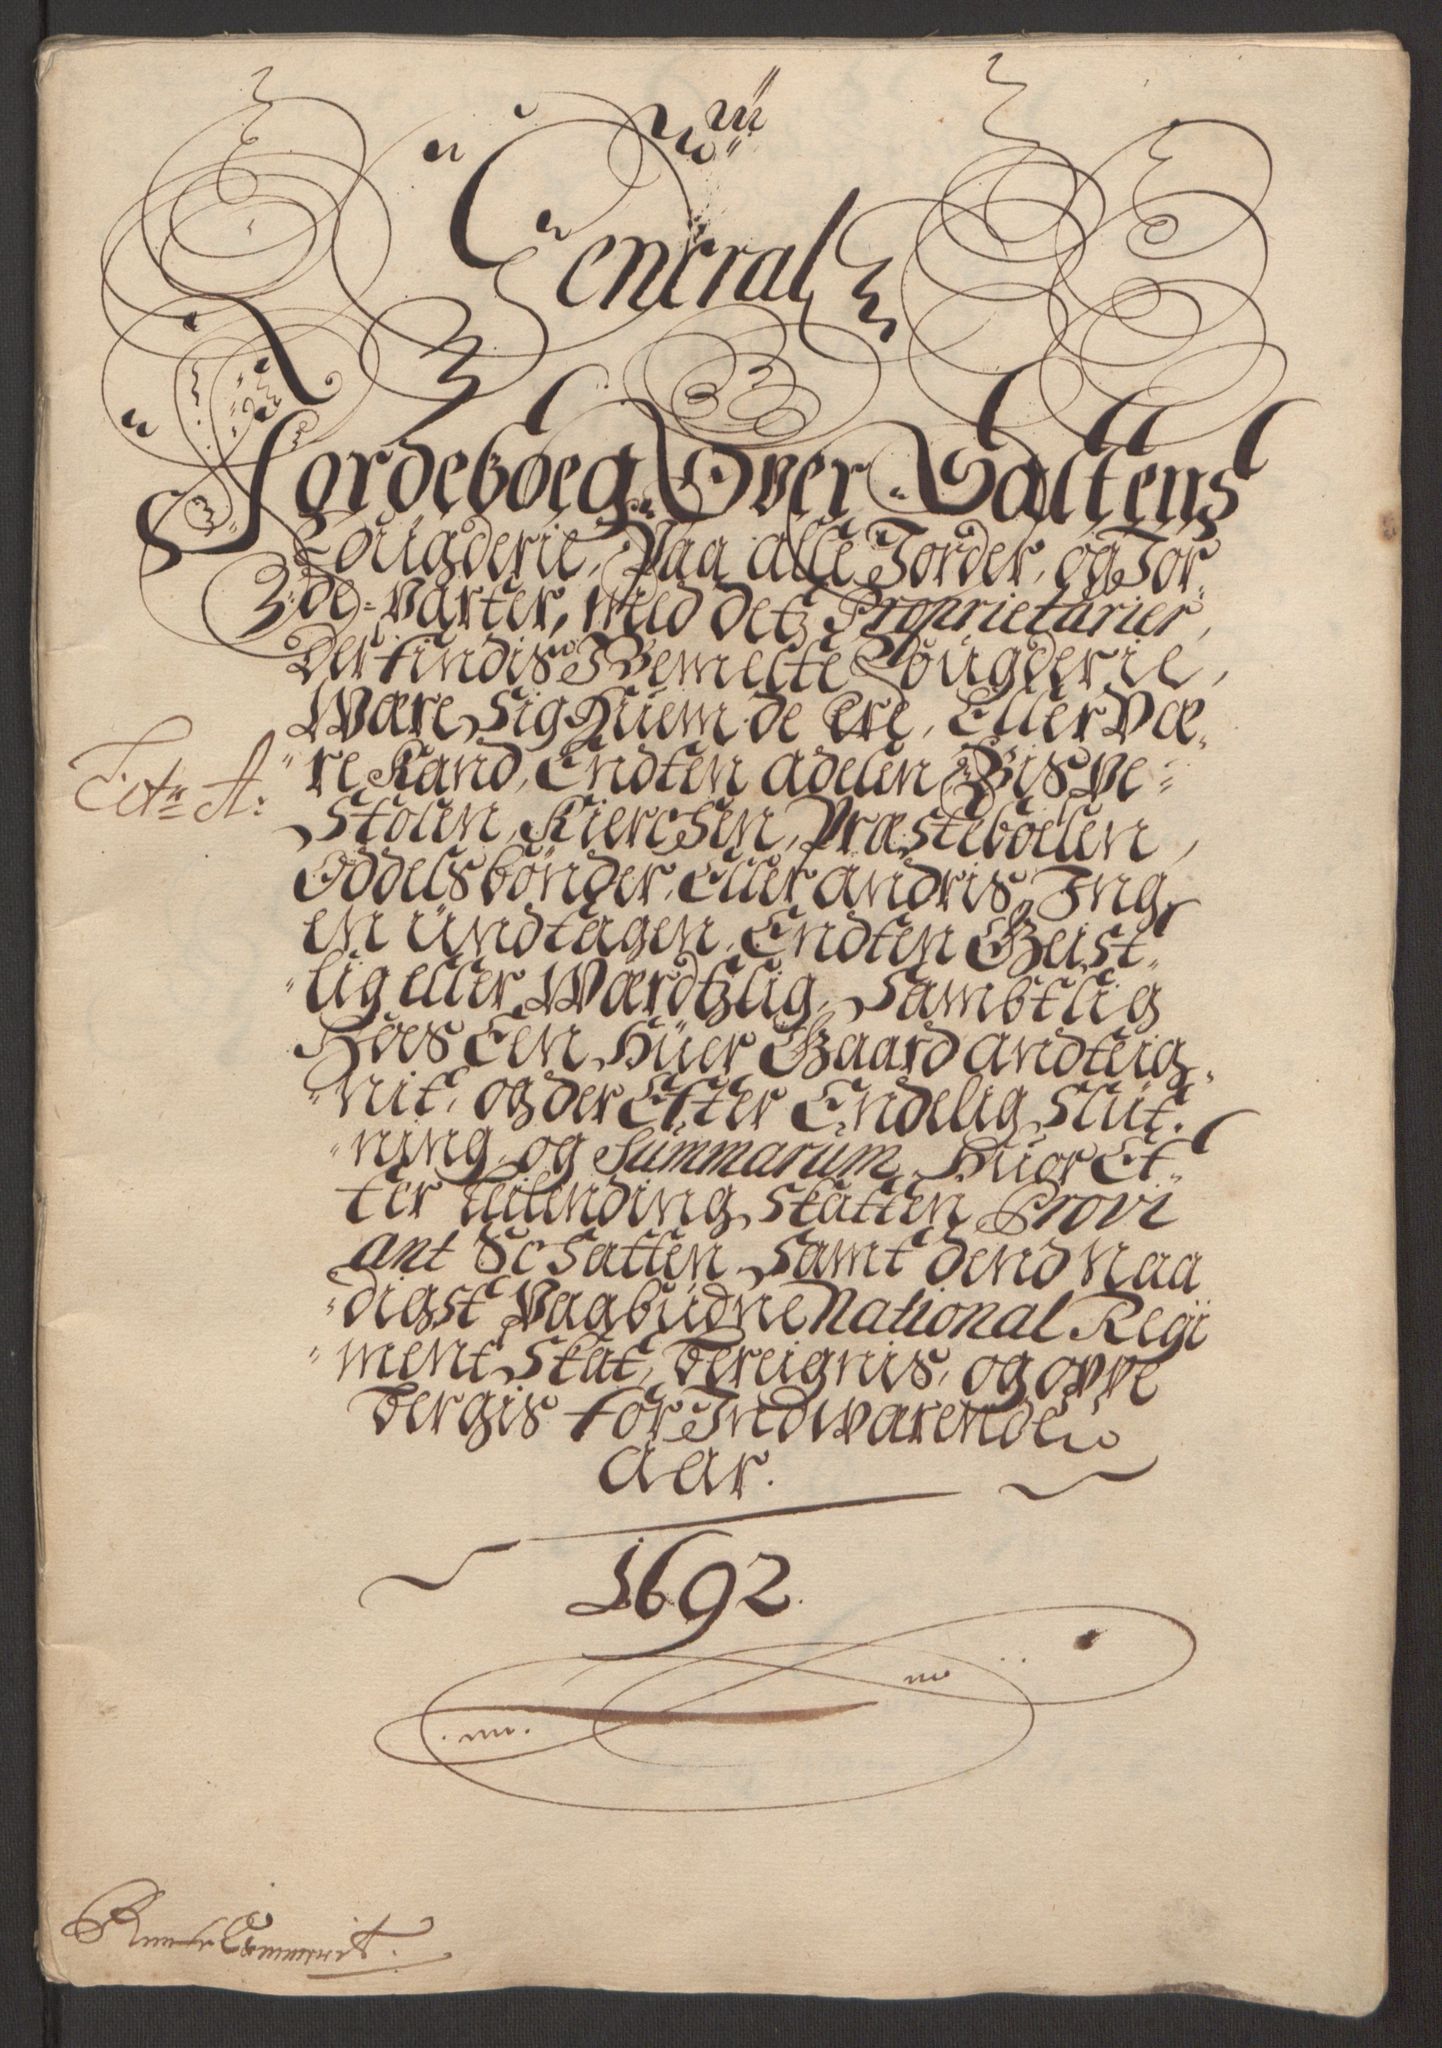 General
Jordeboeg Over Saltens
Fougderie, Paa alle Jorder, og Jor-
de-parter, med detz Proprietarier,
Der findis J Bemelte Fougderie,
Være Sig Huem de Ere, Eller Væ-
re Kand, Endten adelen Bispe-
Stolen, Kiercken, Præsteboelen,
Oddelsbönder, Eller andris, Ing-
en ündtagen, Endten Geist-
lig eller Værdtzlig, Sambtlig
Hoes Een Hüer Gaard andteig-
nit, og der Efter Endelig Slüt-
ning og Summarum, Huor Ef-
ter Leilending Skatten Provi
ant Schatten, Samt dend naa
digst Paabüdne National Regi
ment Skat, bereignis, og oppe
bergis for Indværende
Aar.
1692
Litr A: